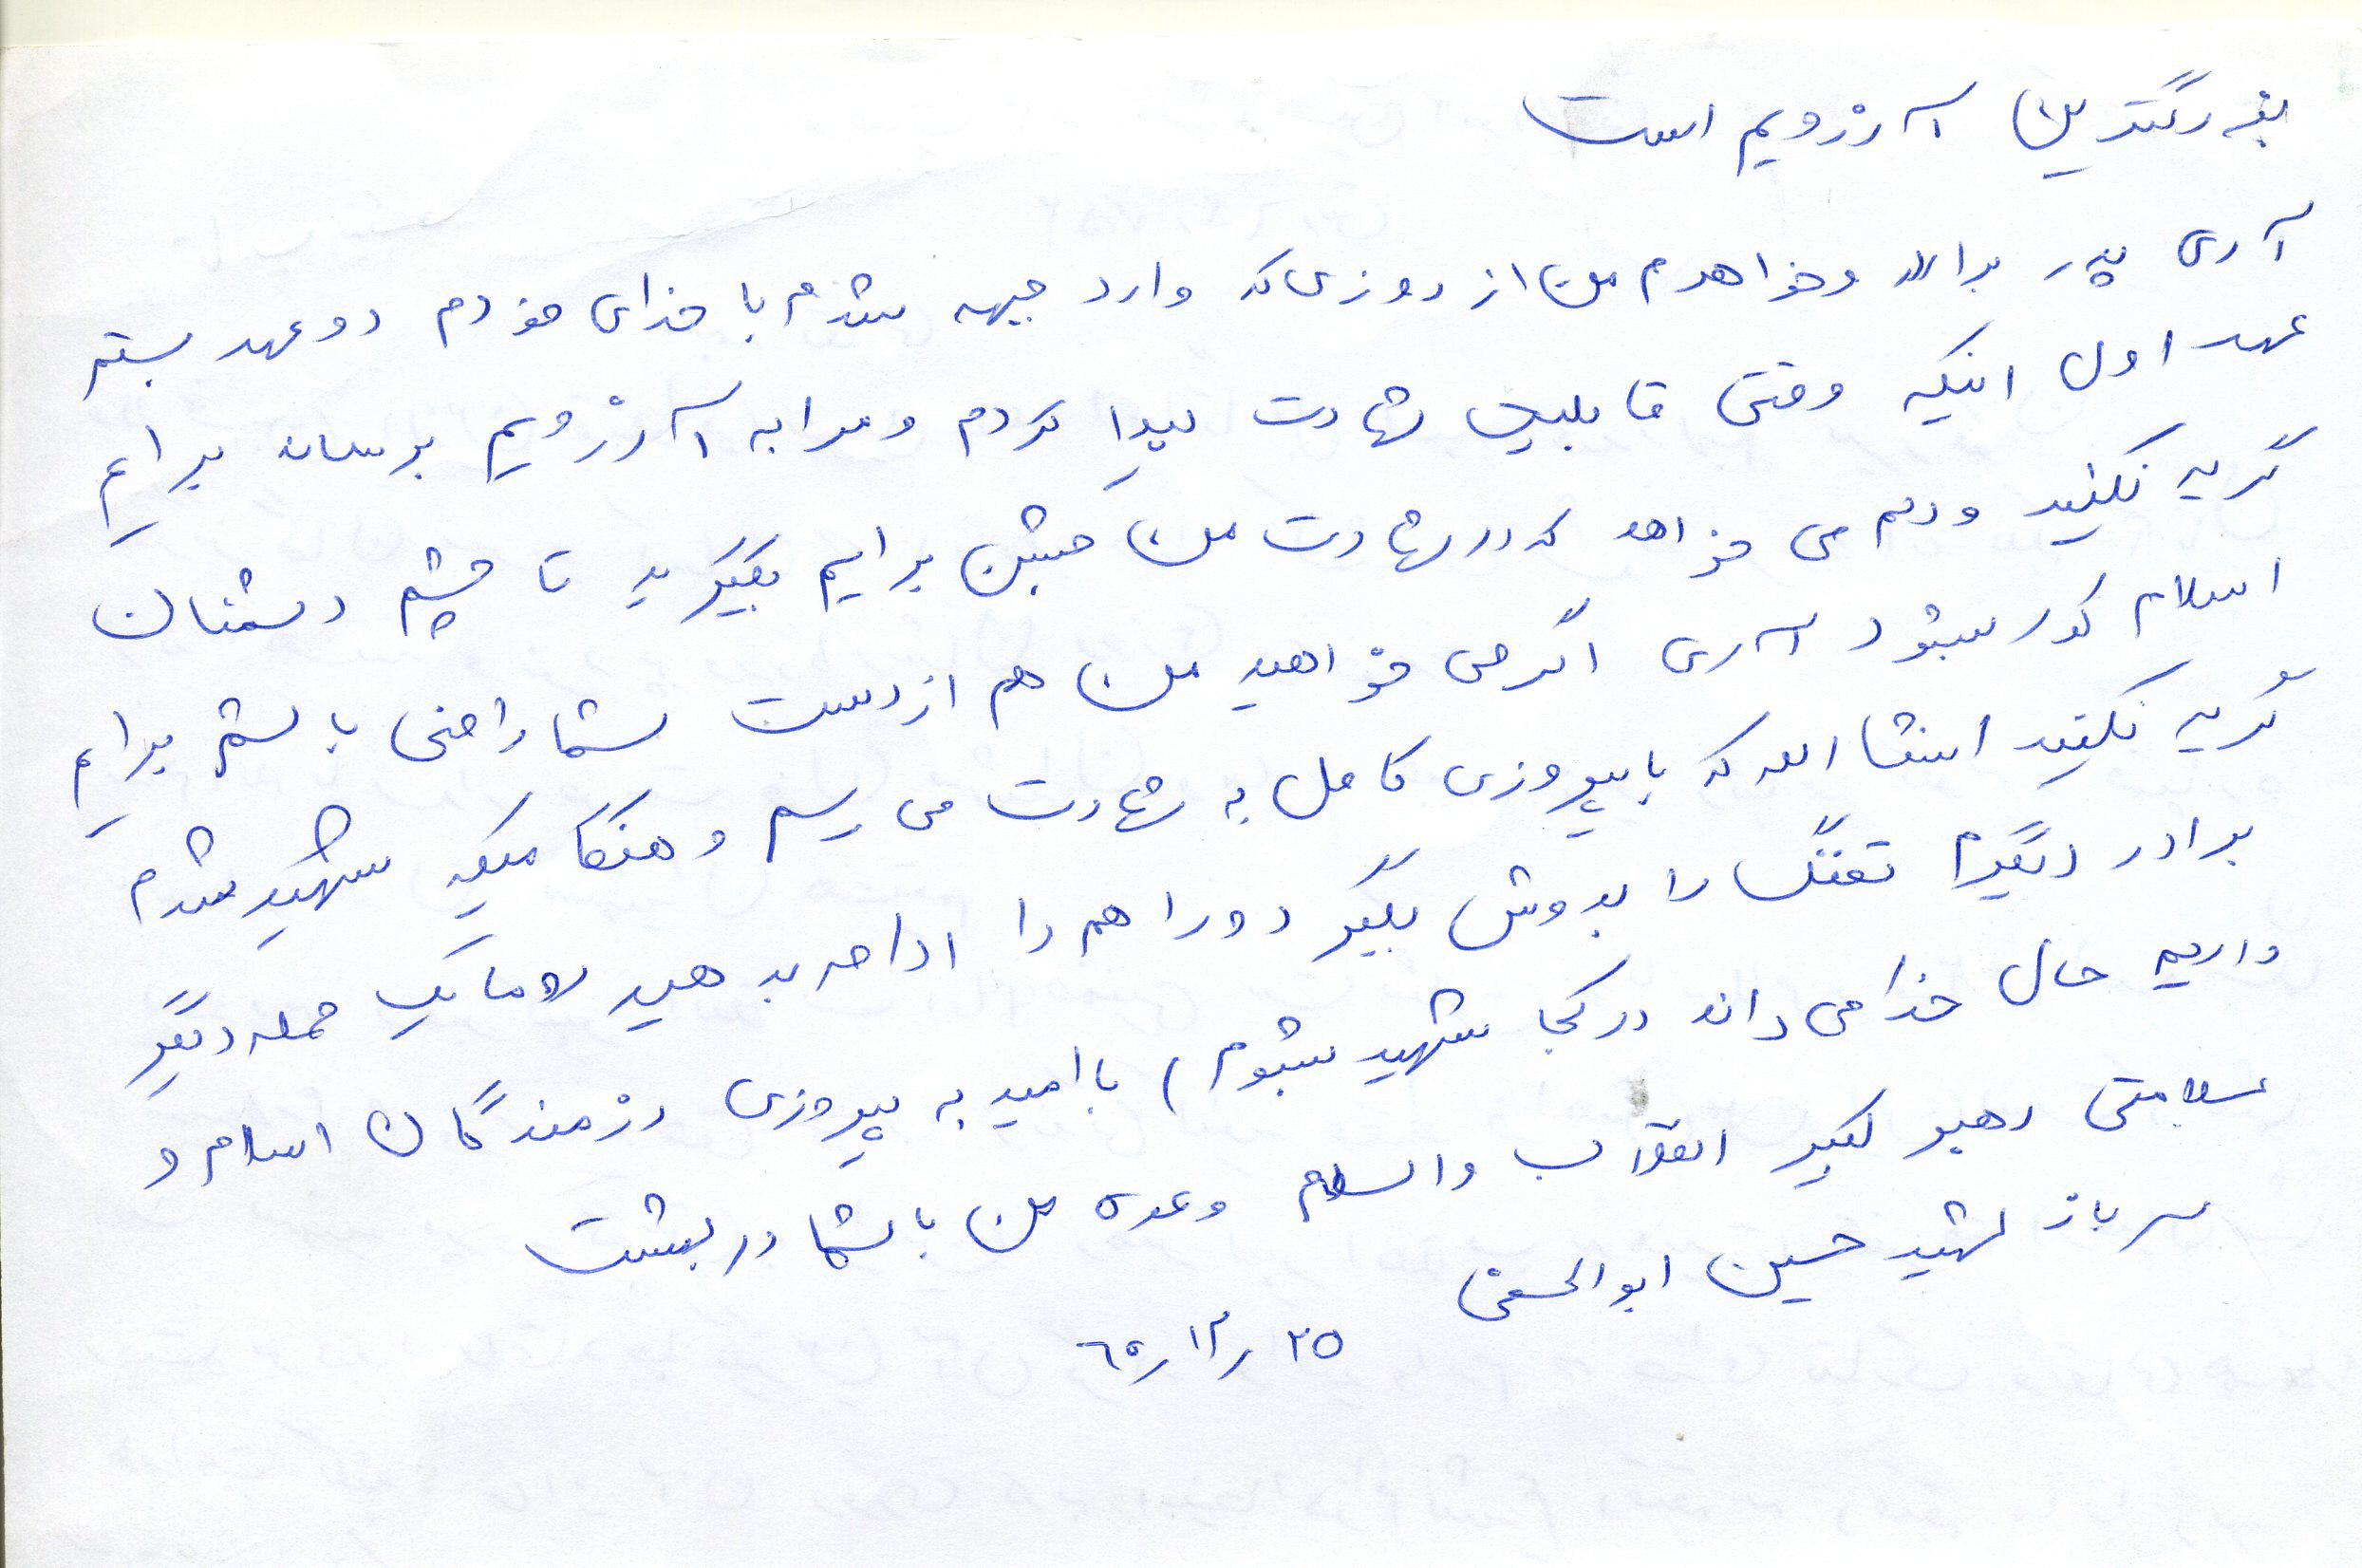 بزرگترین آرزویم است
آری پدر برادر وخواهرم من از روزی که وارد جبهه شدم با خدای خودم دو عهد بستم
عهد اول اینکه وقتی قابلیت شهادت پیدا کردم ومرا به آرزویم برسان برایم
گریه نکنید ودلم می خواهد که در شهادت من جشن برایم بگیرید تا چشم دشمنان
اسلام کور بشود آری اگر می خواهید من هم از دست شما راضی باشم برایم
گریه نکنید انشا الله که با پیروزی کامل به شهادت می رسم و هنگامیکه شهید شدم
برادر دیگرم تفنگ را بدوش بگیر و راهم را ادامه بدهید لاما یک جمله دیگر
داریم حال خدا می داند در کجا شهید بشوم) با امید به پیروزی رزمندگان اسلام و
سلامتی رهبر کبیر انقلاب والسلام وعده من با شما در بهشت
سرباز شهید حسین ابوالحسنی